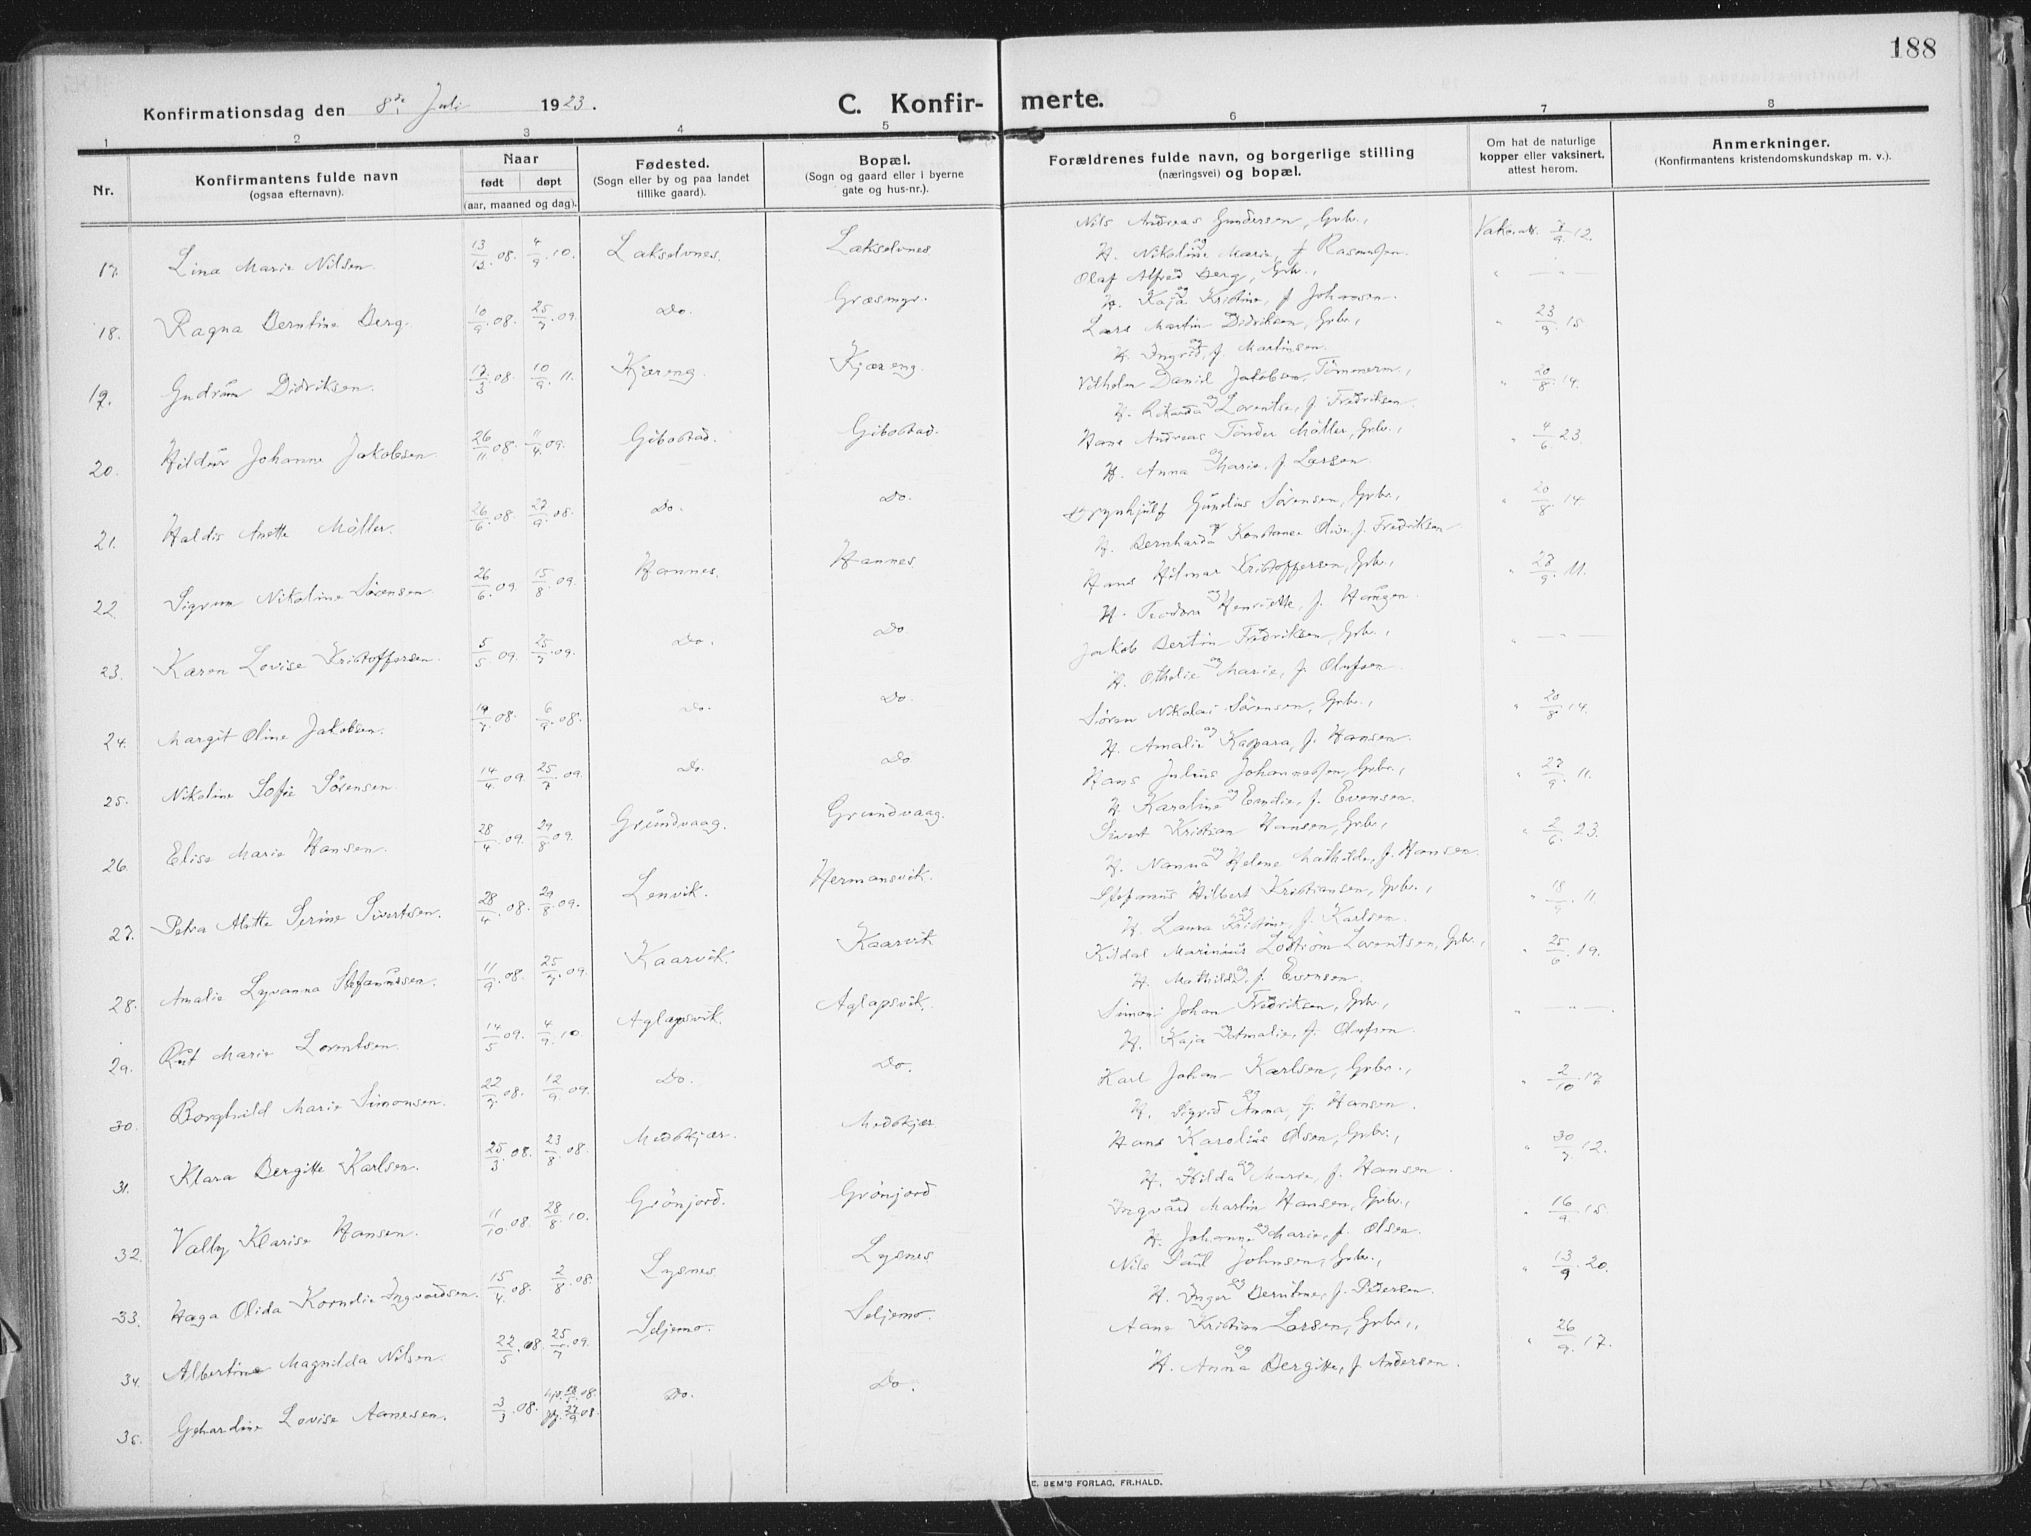 188
Konfirmationsdag den 8de Juli 1923. C. Konfir- merte.
1 2 3 4 5 6 7 8
Nr. Konfirmantens fulde navn (ogsaa efternavn). Naar født døpt (aar, maaned og dag). Fødested. (Sogn eller by og paa landet tillike gaard). Bopæl. (Sogn og gaard eller i byerne gate og hus-nr.). Forældrenes fulde navn, og borgerlige stilling (næringsvei) og bopæl. Om hat de naturlige kopper eller vaksinert, attest herom. Anmerkninger. (Konfirmantens kristendomskundskap m. v.).
17. Lina Marie Nilsen. 13/12.08. 4/9.10. Lakselvnes. Lakselvnes Nils Andreas Gundersen, Grbr., og
H. Nikoline Marie, f. Rasmussen. 12.
18. Ragna Berntine Berg. 10/9.08. 25/7.09. Do. Græsmyr. Olaf Alfred Berg, Grbr., og
H. Kaja Kristine, f. Johansen. " — " —
19. Gudrun Didriksen. 17/3.08. 10/9.11. Kjæreng. Kjæreng. Lars Martin Didriksen, Grbr., og
H. Ingrid, f. Martinsen. " 23/9.15.
20. Hildur Johanne Jakobsen. 26/11.08. 11/4.09. Gibostad. Gibostad. Vilhelm Daniel Jakobsen, Tømmerm., og
H. Rikarda Lorentse, f. Fredriksen. " 20/8.14.
21. Haldis Anette Møller. 26/6.08. 27/9.08. Do. Do. Hans Andreas Tønder Møller, Grbr., og
H. Anna Marie, f. Larsen. " 4/6.23.
22. Sigrun Nikoline Sørensen. 26/6.09. 15/8.09. Hannes. Hannes. Brynhjulf Gundius Sørensen, Grbr., og
H. Bernharda Konstanse Olive, f. Fredriksen " 20/8.14
23. Karen Lovise Kristoffersen. 5/5.09. 25/7.09. Do. Do. Hans Hilmar Kristoffersen, Grbr., og
H. Teodora Henriette, f. Haugen. " 27/9.11.
24. Margit Oline Jakobsen. 19/7.08. 6/9.08. Do. Do. Jakob Bertin Fredriksen, Grbr., og
H. Othelie Marie, f. Olufsen. " — " —
25. Nikoline Sofie Sørensen. 14/4.09. 25/7.09. Do. Do Søren Nikolai Sørensen, Grbr., og
H. Amalie Kaspara, f. Hansen. " 20/8.14.
26. Elise Marie Hansen. 28/4.09. 29/8.09. Grundvaag. Grundvaag. Hans Julius Johannessen, Grbr., og
H. Karoline Emilie, f. Evensen. " 27/9.11.
27. Petra Alette Serine Sivertsen. 28/4.08. 29/8.09. Lenvik. Hermansvik. Sivert Kristian Hansen, Grbr., og
H. Nanna Helene Mathilde, f. Hansen. " 2/6.23.
28. Amalie Lyvanna Stefanussen. 11/9.08. 25/7.09. Kaarvik. Kaarvik Stefanus Hilbert Kristiansen, Grbr., og
H. Laura Kristine, f. Karlsen. " 18/9.11.
29. Rut Marie Lorentsen. 14/5.09. 4/9.10. Aglapsvik. Aglapsvik. Kildal Marinius Lorentsen, Grbr., og
H. Mathilde, f. Evensen. " 25/6.19.
30. Borghild Marie Simonsen. 22/7.08. 12/9.09. Do. Do. Simon Johan Fredriksen, Grbr., og
H. Kaja Amalie, f. Olufsen. " — " —
31. Klara Bergitte Karlsen. 25/3.08. 23/8.08. Medskjær. Medskjær Karl Johan Karlsen, Grbr., og
H. Sigrid Anna, f. Hansen. " 2/10.17
32. Valby Klarise Hansen. 11/10.08. 28/8.10. Grønjord. Grønjord Hans Karolius Olsen, Grbr., og
H. Hilda Marie, f. Hansen. " 30/7.12.
33. Haga Olida Kornelie Ingvardsen. 15/4.08. 2/8.08. Lysnes Lysnes Ingvard Martin Hansen, Grbr., og
H. Johanne Marie, f. Olsen. " 16/9.15.
34. Albertine Magnilda Nilsen. 22/5.08. 25/7.09. Seljemo. Seljemo. Nils Paul Johnsen, Grbr., og
H. Inger Berntine, f. Pedersen. " 13/9.20.
35. Gerhardine Lovise Aanesen. 3/3.08. 27/9.08. Do. Do. Aane Kristian Larsen, Grbr., og
H. Anna Bergitte, f. Andersen. " 26/9.17.
E. SEM'S FORLAG, FR.HALD.